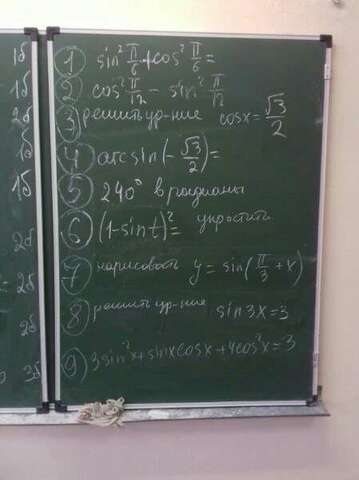 1б
1б
2б
1б
1б
2б
2б
2б
3б
① sin² π/6 + cos² π/6 =
② cos² π/12 − sin² π/12
③ решить ур-ние cosx = √3/2
④ arcsin(−√3/2) =
⑤ 240° в радианы
⑥ (1-sint)² = упростить
⑦ нарисовать y = sin(π/3 + x)
⑧ решить ур-ние sin3x = 3
⑨ 3sin²x + sinxcosx + 4cos²x = 3